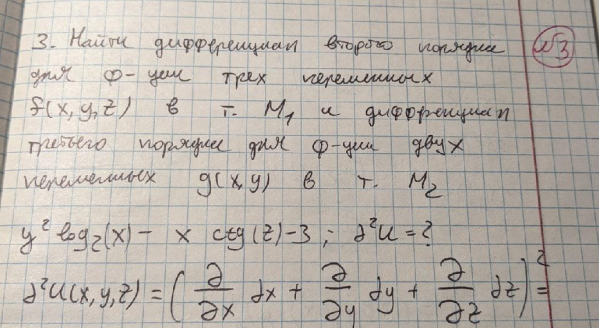 3. Найти дифференциал второго порядка
для ф-ции трех переменных
f(x,y,z) в т. M₁ и дифференциал
третьего порядка для ф-ции двух
переменных g(x,y) в т. M₂
y² log₂(x) - x ctg(z) - 3 ; d²U = ?
d²U(x,y,z) = (∂/∂x dx + ∂/∂y dy + ∂/∂z dz)² =
№3